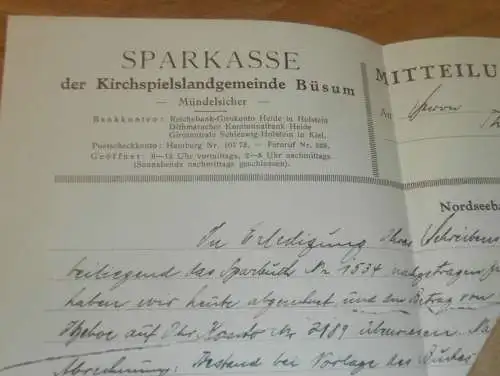 SPARKASSE
der Kirchspielslandgemeinde Büsum
— Mündelsicher —
Bankkonten: Reichsbank-Girokonto Heide in Holstein
Dithmarscher Kommunalbank Heide
Girozentrale Schleswig-Holstein in Kiel.
Postscheckkonto: Hamburg Nr. — Fernruf Nr.
Geöffnet: 8—12 Uhr vormittags, 2—5 Uhr nachmittags
(Sonnabends nachmittags geschlossen).
MITTEILU
An Herrn
Nordseeba
In Erledigung Ihres Schreibens
beiliegend das Sparbuch Nr. 1534 nachgetragen
haben wir heute abgehoben und den Betrag von
Itzehoe auf Ihr Konto Nr 2189 überwiesen. Na
Abrechnung: Bestand bei Vorlage des Buches